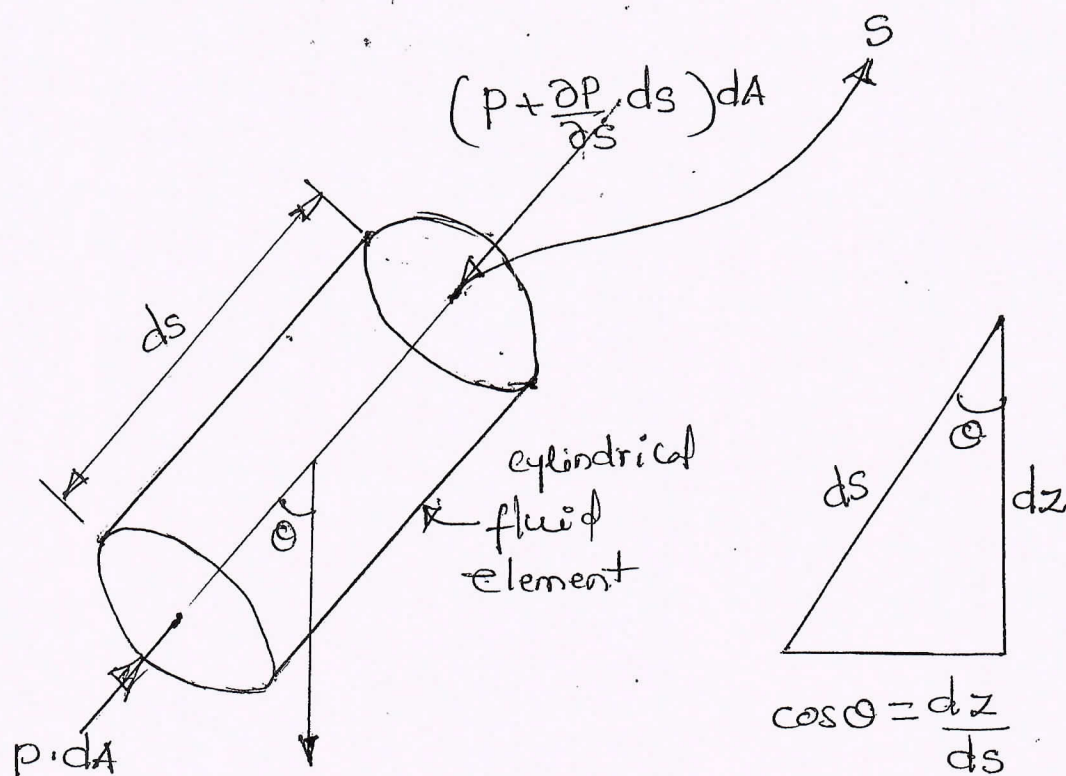 S
(p + ∂P/∂S ds) dA
ds
cylindrical
fluid
element
θ
p.dA
θ
ds
dz
cosθ = dz/ds